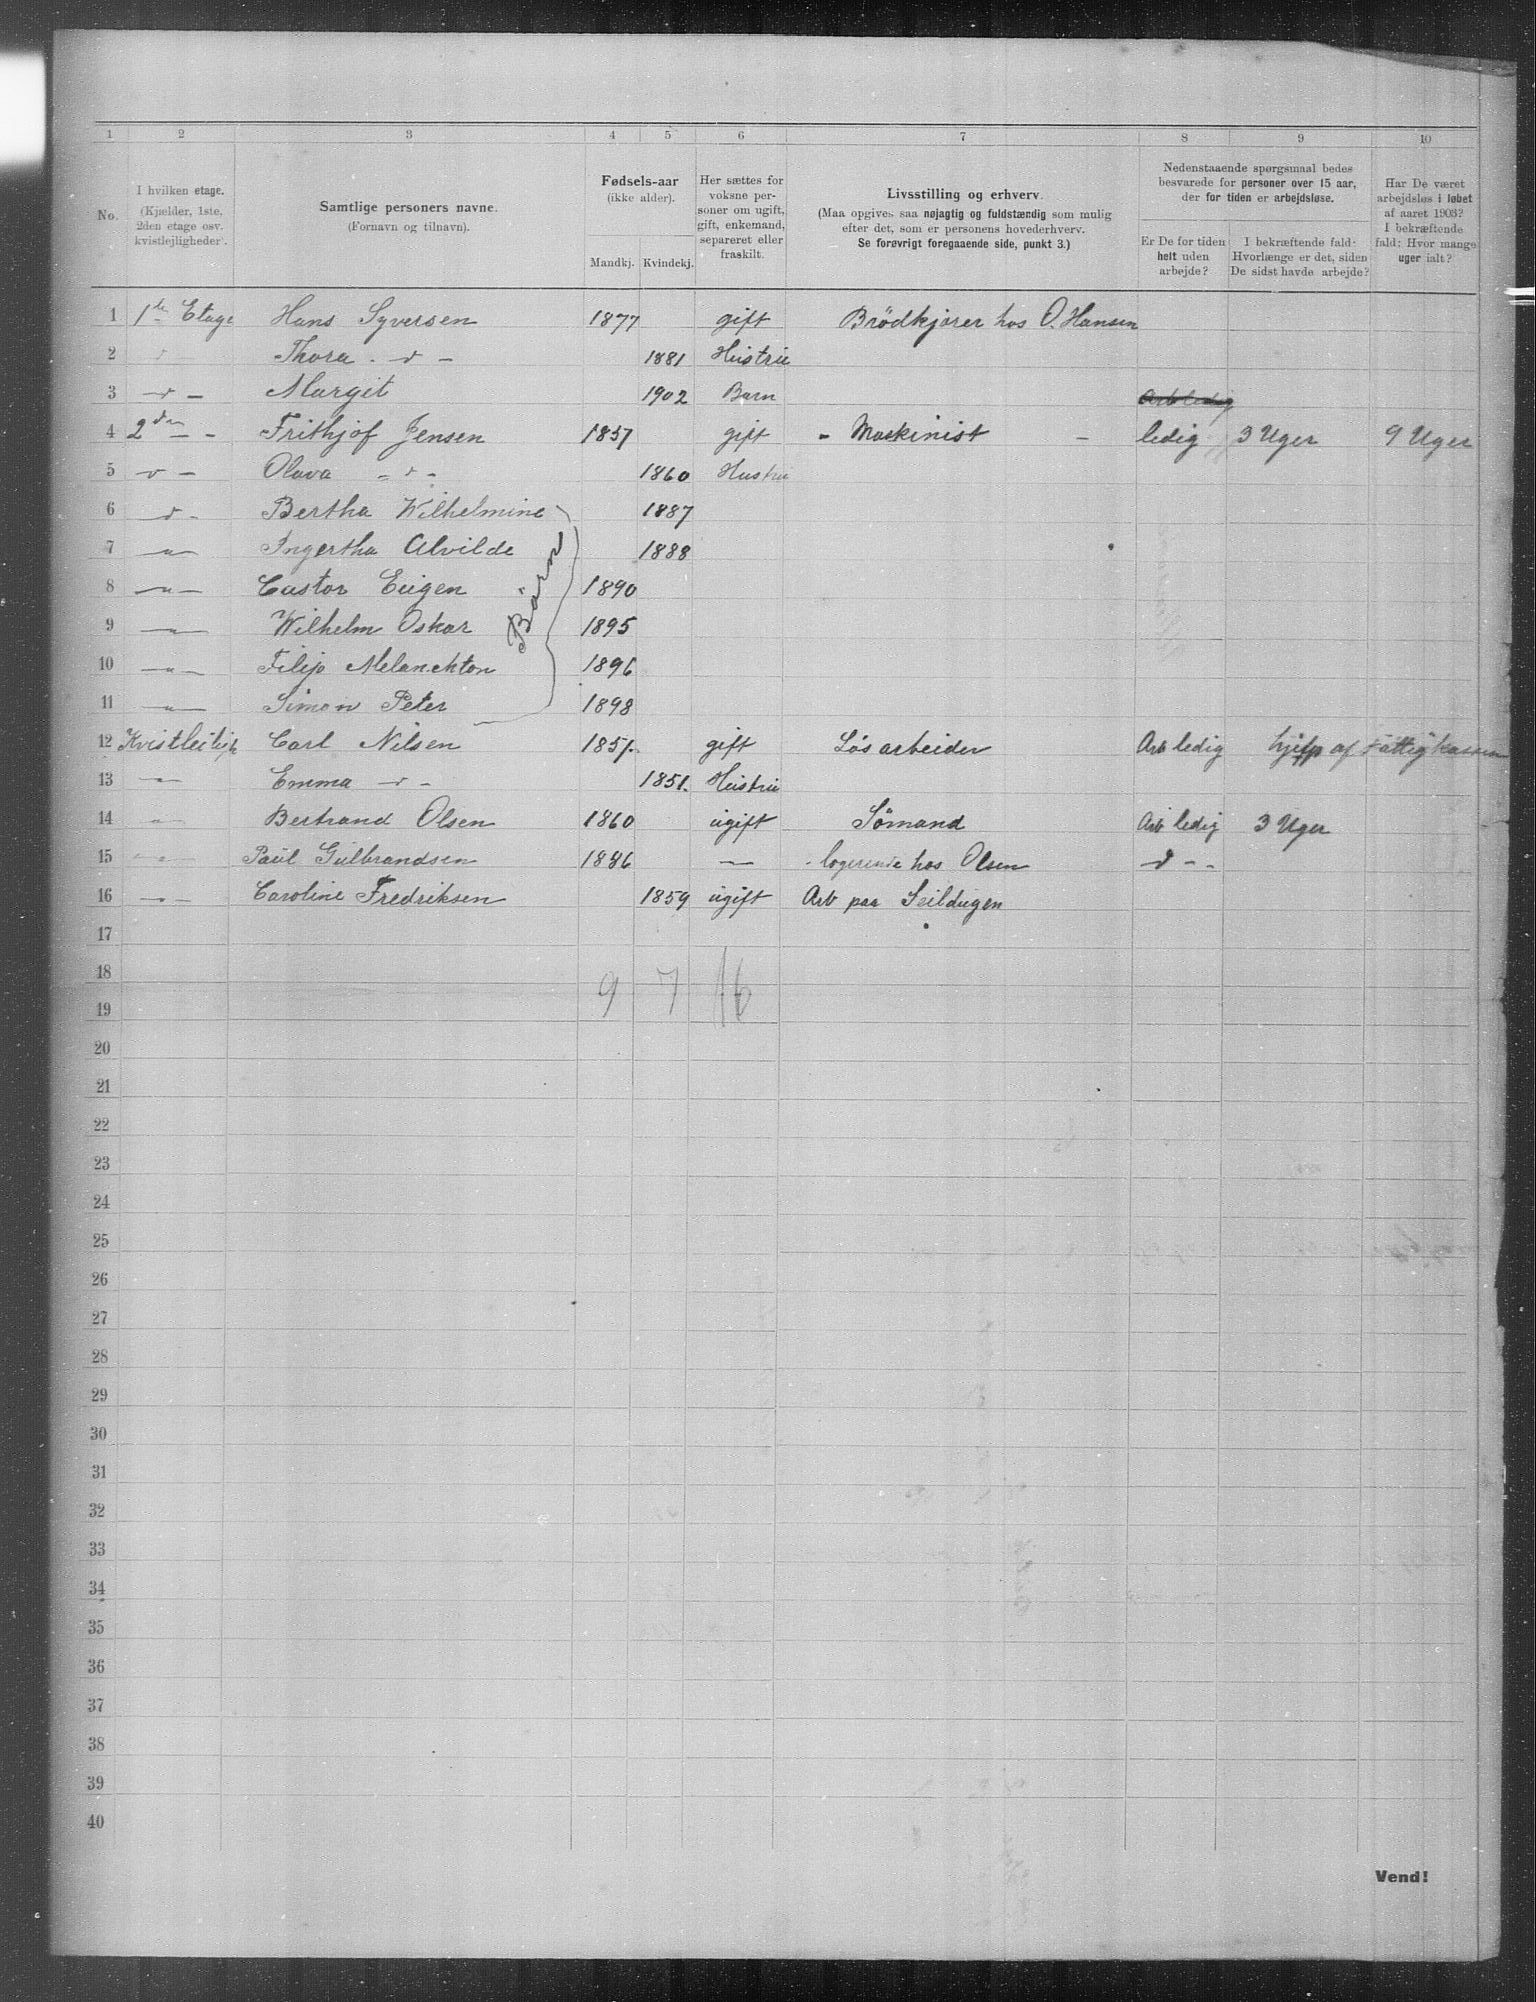 1 2 3 4 5 6 7 8 9 10
No.
I hvilken etage.
(Kjælder, 1ste,
2den etage osv.
kvistlejligheder).
Samtlige personers navne.
(Fornavn og tilnavn).
Fødsels-aar
(ikke alder).
Mandkj. Kvindekj.
Her sættes for
voksne per-
soner om ugift,
gift, enkemand,
separeret eller
fraskilt.
Livsstilling og erhverv.
(Maa opgives saa nøjagtig og fuldstændig som mulig
efter det, som er personens hovederhverv.
Se forøvrigt foregaaende side, punkt 3.)
Nedenstaaende spørgsmaal bedes
besvarede for personer over 15 aar,
der for tiden er arbejdsløse.
Er De for tiden
helt uden
arbejde?
I bekræftende fald:
Hvorlænge er det, siden
De sidst havde arbejde?
Har De været
arbejdsløs i løbet
af aaret 1903?
I bekræftende
fald: Hvor mange
uger ialt?
1 1ste Etage Hans Syversen 1877 gift Brödkjører hos O. Hansen
2 d Thora - d - 1881 Hustru
3 - d - Margit 1902 Barn Arb ledig
4 2den - - Frithjof Jensen 1857 gift - Maskinist - ledig 3 Uger 9 Uger
5 - d - Olava - d - 1860 Hustru
6 - d - Bertha Wilhelmine 1887
7 - " - Ingertha Alvilde 1888
8 - " - Castor Eugen 1890
9 - " - Wilhelm Oskar 1895
10 - " - Filip Melanchton 1896
11 - " - Simon Peter 1898
Börn
12 Kvistleiligh Carl Nilsen 1851. gift Løsarbeider Arb ledig hjelp af Fattigkassen
13 - " - Emma - d - 1851. Hustru
14 - " - Bertrand Olsen 1860 ugift Sømand Arb ledig 3 Uger
15 - " - Paul Gulbrandsen 1886 - - logerende hos Olsen - d - -
16 - " - Caroline Fredriksen 1859 ugift Arb paa Seildugen
17
18
9 7 16
19
20
21
22
23
24
25
26
27
28
29
30
31
32
33
34
35
36
37
38
39
40
Vend!